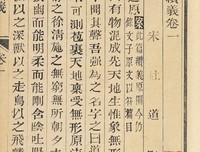 義卷一
宋　杜道
有物混成先天地生惟象無形
聞其聲吾强為之名字之曰道
可測苞裹天地稟受無形原流
之徐清施之無窮無所朝夕表
幽而能明柔而能剛含陰吐陽
以之深獸以之走鳥以之飛